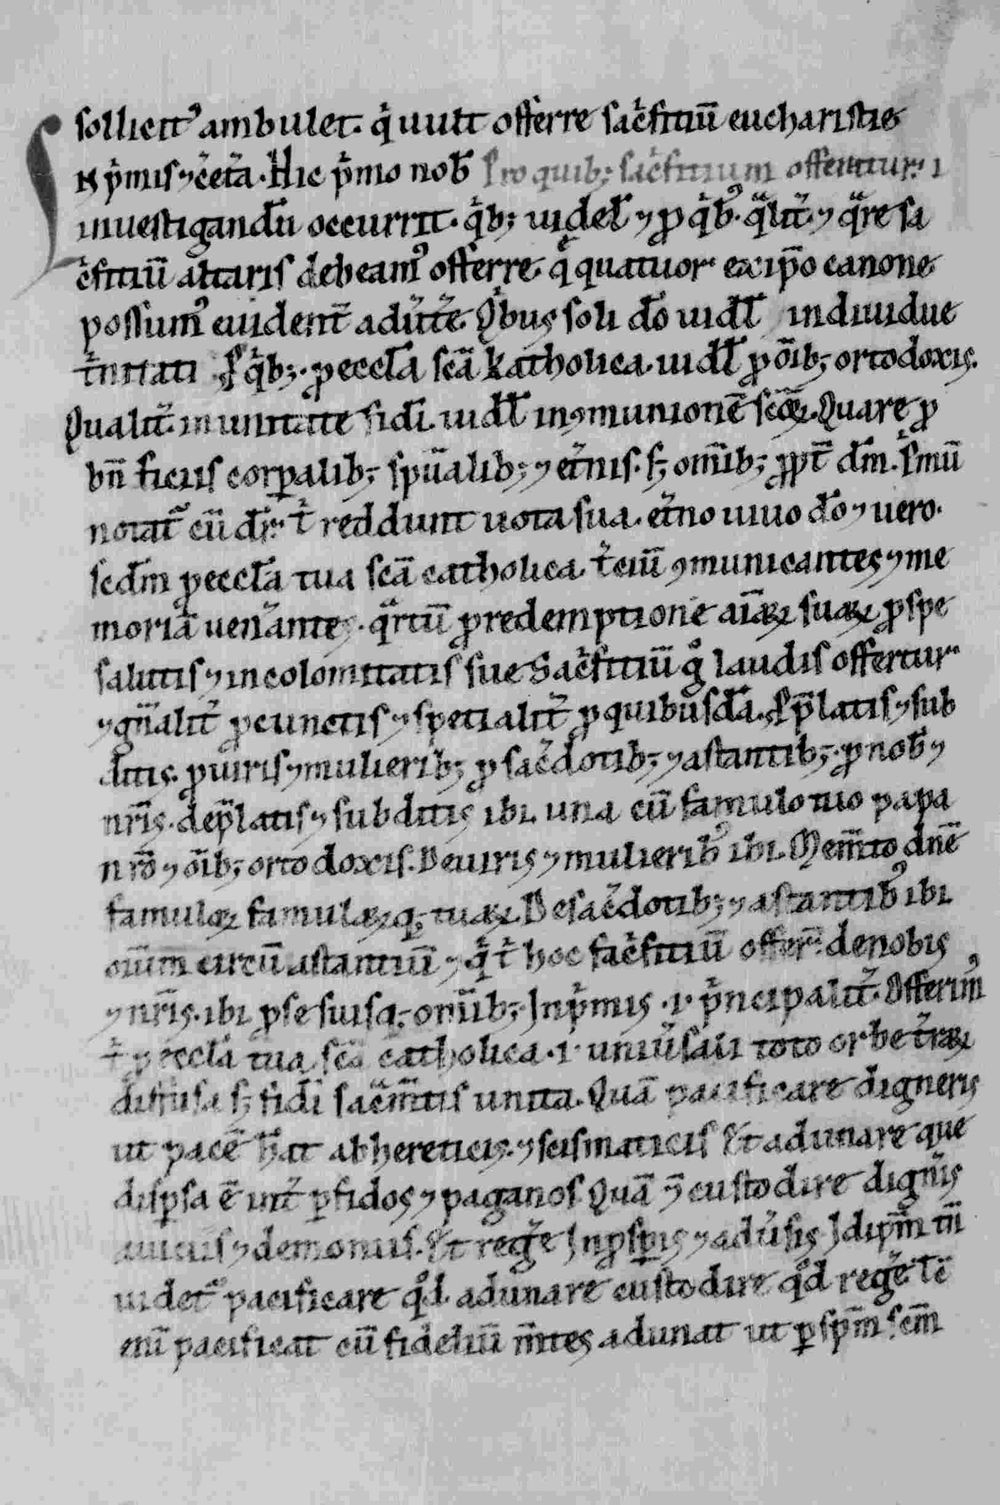 sollicit᾽ ambulet. q̇ uult offerre sac̓ficiū eucharistie
N p̓mis ⁊ cet̃a. Hic p̓mo nob̄ Pro quib; sac̓ficium offeratur. I
inuestigandū occurrit. q̇b; uidel̃ ⁊ ꝓ q̇b᾽. q̃lit̃ ⁊ q̃re sa
c̓ficiū altaris debeam᾽ offerre. q̃ quatuor ex ip̄o canone
possum᾽ euident̃ adu̓t̓e. Q̇bus soli dõ uidl̃ indiuidue
t̓nitati ꝓ q̇b;. ꝓ eccl̃a sc̄a katholica. uidl̃ ꝓ oīb; ortodoxis.
Qualit̃. in unitate fidei. uidl̃ in ꝯmunionē sc̄oꝝ. Quare ꝓ
bñ ficiis corꝑalib; spūalib; ⁊ et̃nis. s; omīb; ꝓpt̃ dm̄. P̓mū
notat᾽ cū dr̄. t̓ reddunt uota sua. et̃no uiuo dõ ⁊ uero.
scdm̄ ꝓ eccl̃a tua sc̄a catholica. t̓ciū ꝯmunicantes ⁊ me
moriā uen̓antes. q̃rtū ꝓ redemptione aīaꝝ suaꝝ ꝓ spe
salutis ⁊ incolomitatis sue Sac̓ficiū g᷒ laudis offertur
⁊ gñalit̃ ꝓ cunctis ⁊ specialit̃ ꝓ quibusdā. ꝓ p̃latis ⁊ sub
ditis. ꝓ uiris ⁊ mulierib; ꝓ sac̃dotib; ⁊ astantib;. ꝓ nob̄ ⁊
nr̄is. de p̃latis ⁊ subditis ibi. una cū famulo tuo papa
nr̄o ⁊ oīb; ortodoxis. De uiris ⁊ mulierib᾽ ibi. Mem̄to dn̄e
famuloꝝ famulaꝝq; tuaꝝ. De sac̃dotib; ⁊ astantib᾽ ibi
oīum circū astantiū ⁊ q̇ t̓ hoc sac̓ficiū offer̄. de nobis
⁊ nr̄is. ibi ꝓ se suisq; omīb;. In p̓mis .i. p̓ncipalit̃. Offerim᾽
t̓ ꝓ eccl̃a tua sc̄a catholica .i. uniu̓sali toto orbe t̃raꝝ
diffusa s; fidei sac̃m̄tis unita. Quā pacificare digneris
ut pacē h̄at ab hereticis. ⁊ scismaticis Et adunare que
disꝑsa ē int̃ ꝑfidos ⁊ paganos. Quā ⁊ custodire dign̓is
a uiciis ⁊ demoniis. Et reg̓e In ꝓspis ⁊ adu̓sis Idip̄m tn̄
uidet᾽ pacificare qd̓. adunare custodire qd̓ reg̓e Cē
enī pacificat cū fideliū m̄tes adunat ut ꝑ sp̄m sc̄m